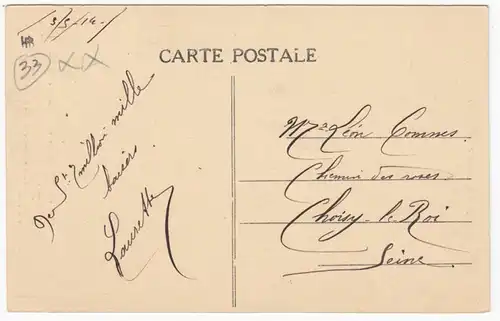 3/5/14
33
CARTE POSTALE
De St 7 million mille
baisers
Laurette
Léon Commes.
Chemin des roses
Choisy-le-Roi
Seine.